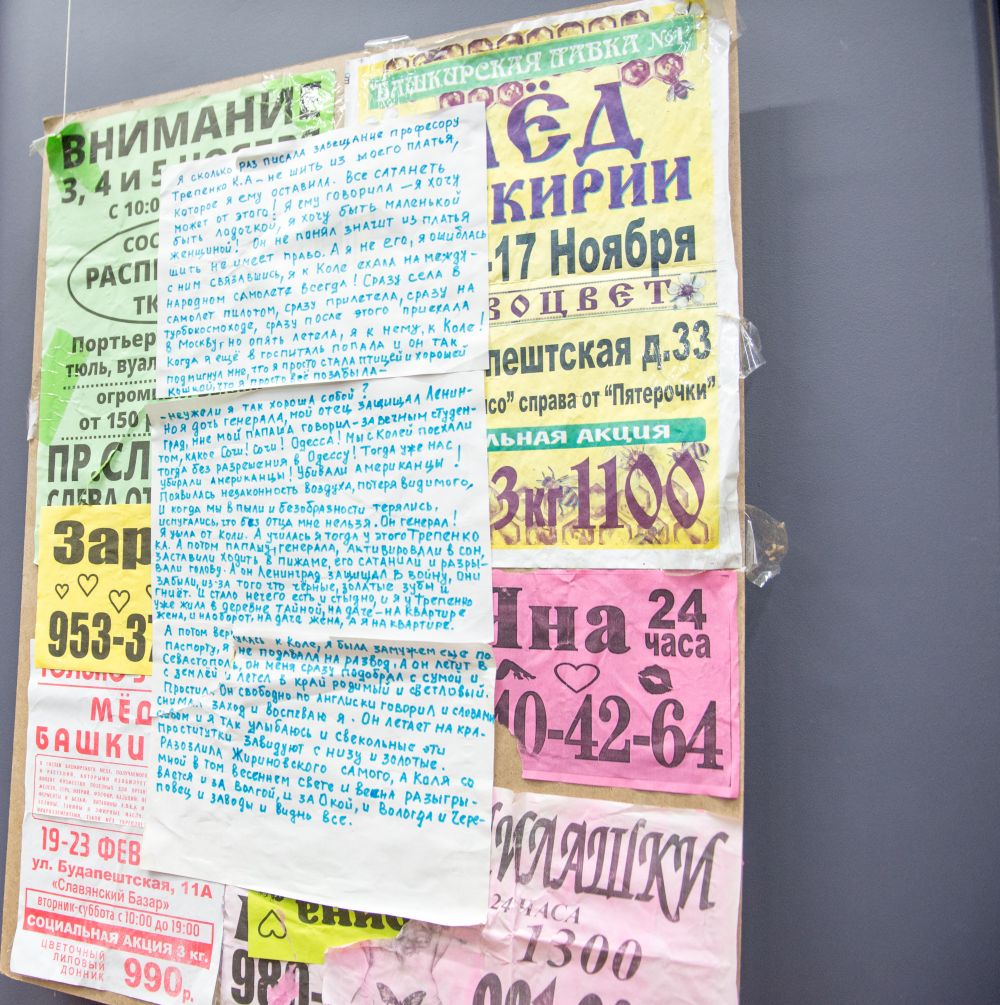 ВНИМАНИ
3, 4 и 5 НО
С 10:0
СОС
РАСП
ТК
Портьер
тюль, вуал
огром
от 150 р
ПР.СЛ
СЛЕВА ОТ
Зар
953-37
ТОЛЬКО
МЁД
БАШКИ
19-23 ФЕВ
ул. Будапештская, 11А
«Славянский Базар»
вторник-суббота с 10:00 до 19:00
СОЦИАЛЬНАЯ АКЦИЯ 3 кг.
ЦВЕТОЧНЫЙ
ЛИПОВЫЙ
ДОННИК
990р.
Я сколько раз писала завещание професору
Трепенко К.А – не шить из моего платья,
которое я ему оставила. Все сатанеть
может от этого! Я ему говорила – я хочу
быть лодочкой, я хочу быть маленькой
женщиной! Он не понял значит из платья
шить не имеет право. А я не его, я ошиблась
с ним связавшись, я к Коле ехала на между-
народном самолете всегда! Сразу села в
самолет пилотом, сразу прилетела, сразу на
турбокосмоходе, сразу после этого приехала
в Москву. Но опять летела, я к нему, к Коле!
Когда я ещё в госпиталь попала и он так
подмигнул мне, что я просто стала птицей и хорошей
кошкой, что я просто всё позабыла –
– неужели я так хороша собой?
Но я дочь генерала, мой отец защищал Ленин-
град, мне мой папаша говорил – за вечным студен-
том, какое Сочи! Сочи! Одесса! Мы с Колей поехали
тогда без разрешения в Одессу! Тогда уже нас
убирали американцы! Убивали американцы!
Появилась незаконность воздуха, потеря видимого,
и когда мы в пыли и безобразности терялись,
испугались, что без отца мне нельзя. Он генерал!
Я ушла от Коли. А училась я тогда у этого Трепенко
К.А. А потом папашу, генерала, активировали в сон,
заставили ходить в пижаме, его сатанили и разры-
вали голову. А он Ленинград защищал в войну, они
забыли, из-за того что чёрные, золатые зубы и
гниёт. И стало нечего есть и стыдно, и я у Трепенко
уже жила в деревне тайной, на даче – на квартире
жена, и наоборот, на даче жена, а я на квартире.
А потом вернулась к Коле, я была замужем ещё по
паспорту, я не подавала на развод. А он летит в
Севастополь, он меня сразу подобрал с сумой и
с землёй и летел в край родимый и светловый.
Простил. Он свободно по Англиски говорил и словами
снимал заход и воспеваю я. Он летает на кра-
сивом и я так улыбаюсь и свекольные эти
проститутки завидуют с низу и золотые.
Разозлила Жириновского самого, а Коля со
мной в том весеннем свете и весна разыгры-
вается и за Волгой, и за Окой, и Вологда и Чере-
повец и заводы и видны все.
БАШКИРСКАЯ ЛАВКА №1
ЁД
КИРИИ
-17 Ноября
ВОЦВЕТ
пештская д.33
со” справа от “Пятерочки”
ЛЬНАЯ АКЦИЯ
3 кг 1100
Яна 24
часа
40-42-64
МИЛАШКИ
24 ЧАСА
1300
енис
980-
981-